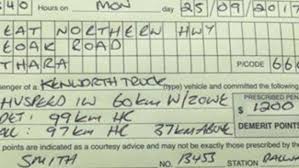 340 Hours on MON 25/09/201
EAT NORTHERN HWY
E OAK ROAD
THARA P/CODE 66
ssenger of a: KENWORTH TRUCK (type) vehicle and committed the following
60 km W/ZONE PRESCRIBED PEN
DET: 99 km HC $ 1200
97 km HC 37km ABOVE DEMERIT POINTS
points are indicated as a courtesy advice and may not exactly those prescribed by the
SMITH No. 13453 STATION